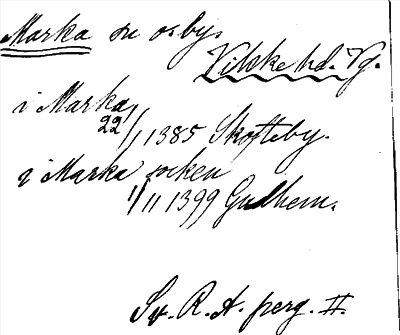 Marka sn o. by.
Vilske hd. Vg.
i Marka
22/1 1385 Skofteby.
i Marka socken
1/11 1399 Gudhem.
Sv. R. A. perg. II.